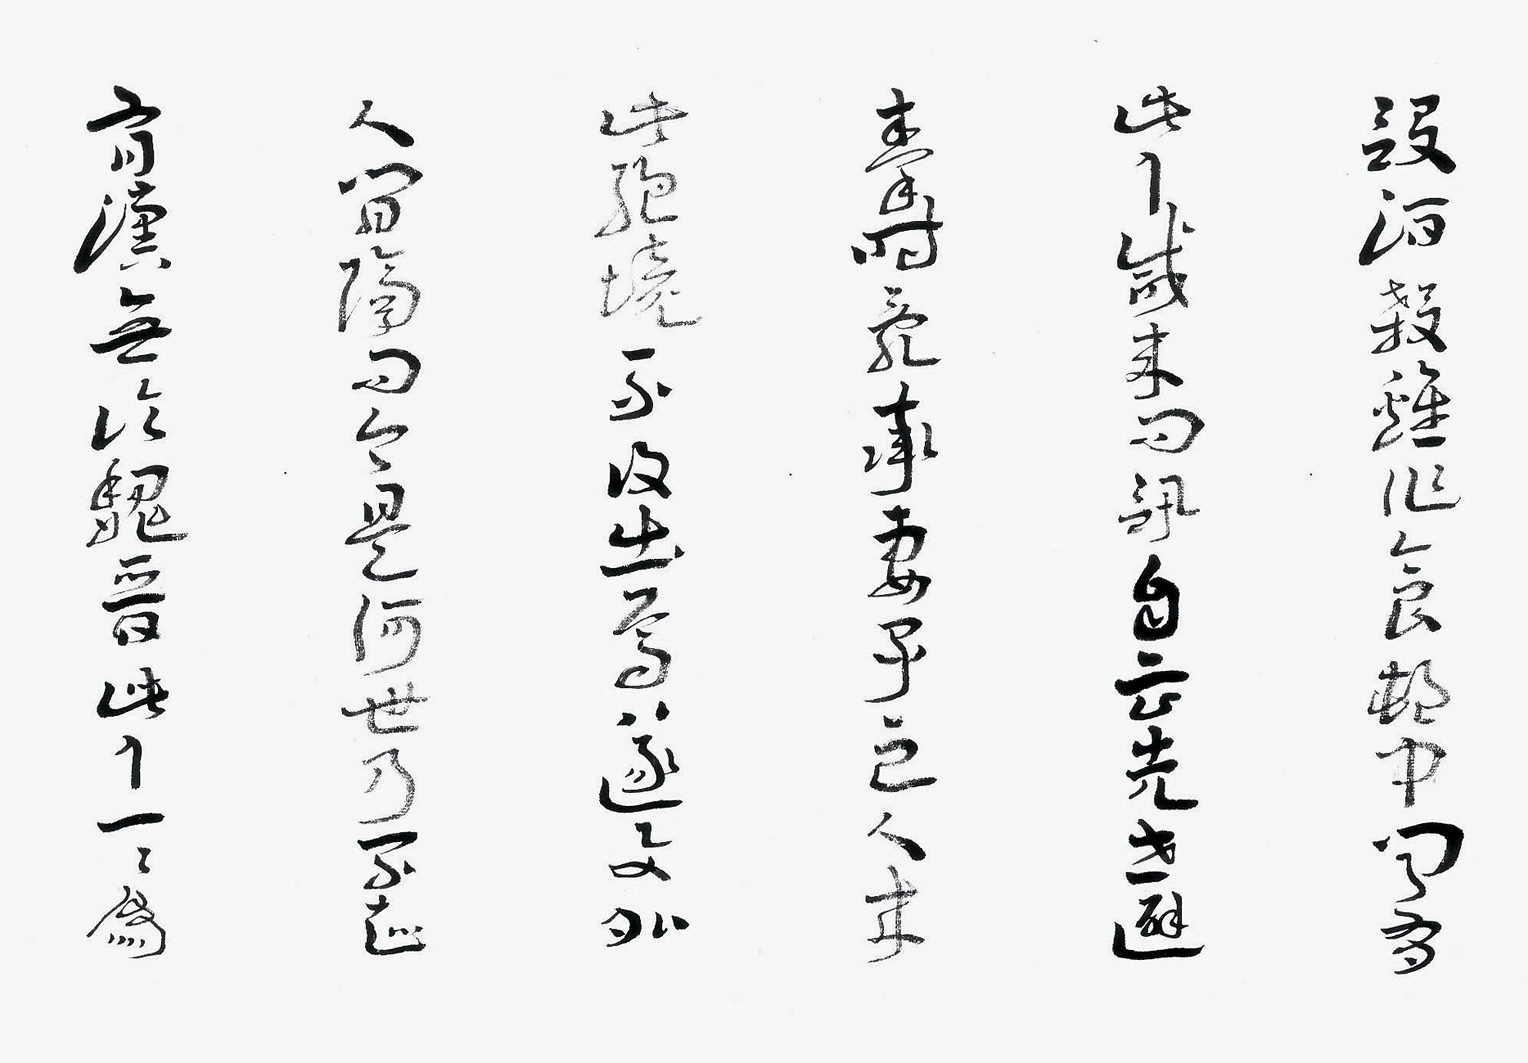 設酒殺雞作食邨中聞有
此人咸來問訊自云先世避
秦時亂率妻子邑人來
此絕境不復出焉遂與外
人間隔問今是何世乃不知
有漢無論魏晉此人一一為